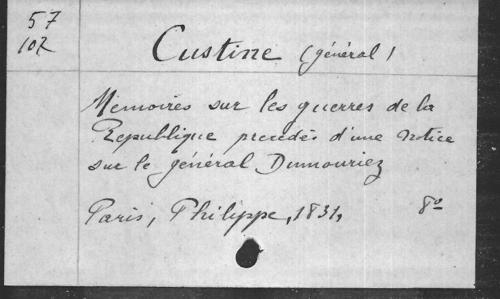 57
107
Custine (général)
Mémoires sur les guerres de la
République precédés d'une notice
sur le général Dumouriez
Paris, Philippe, 1831, 8º